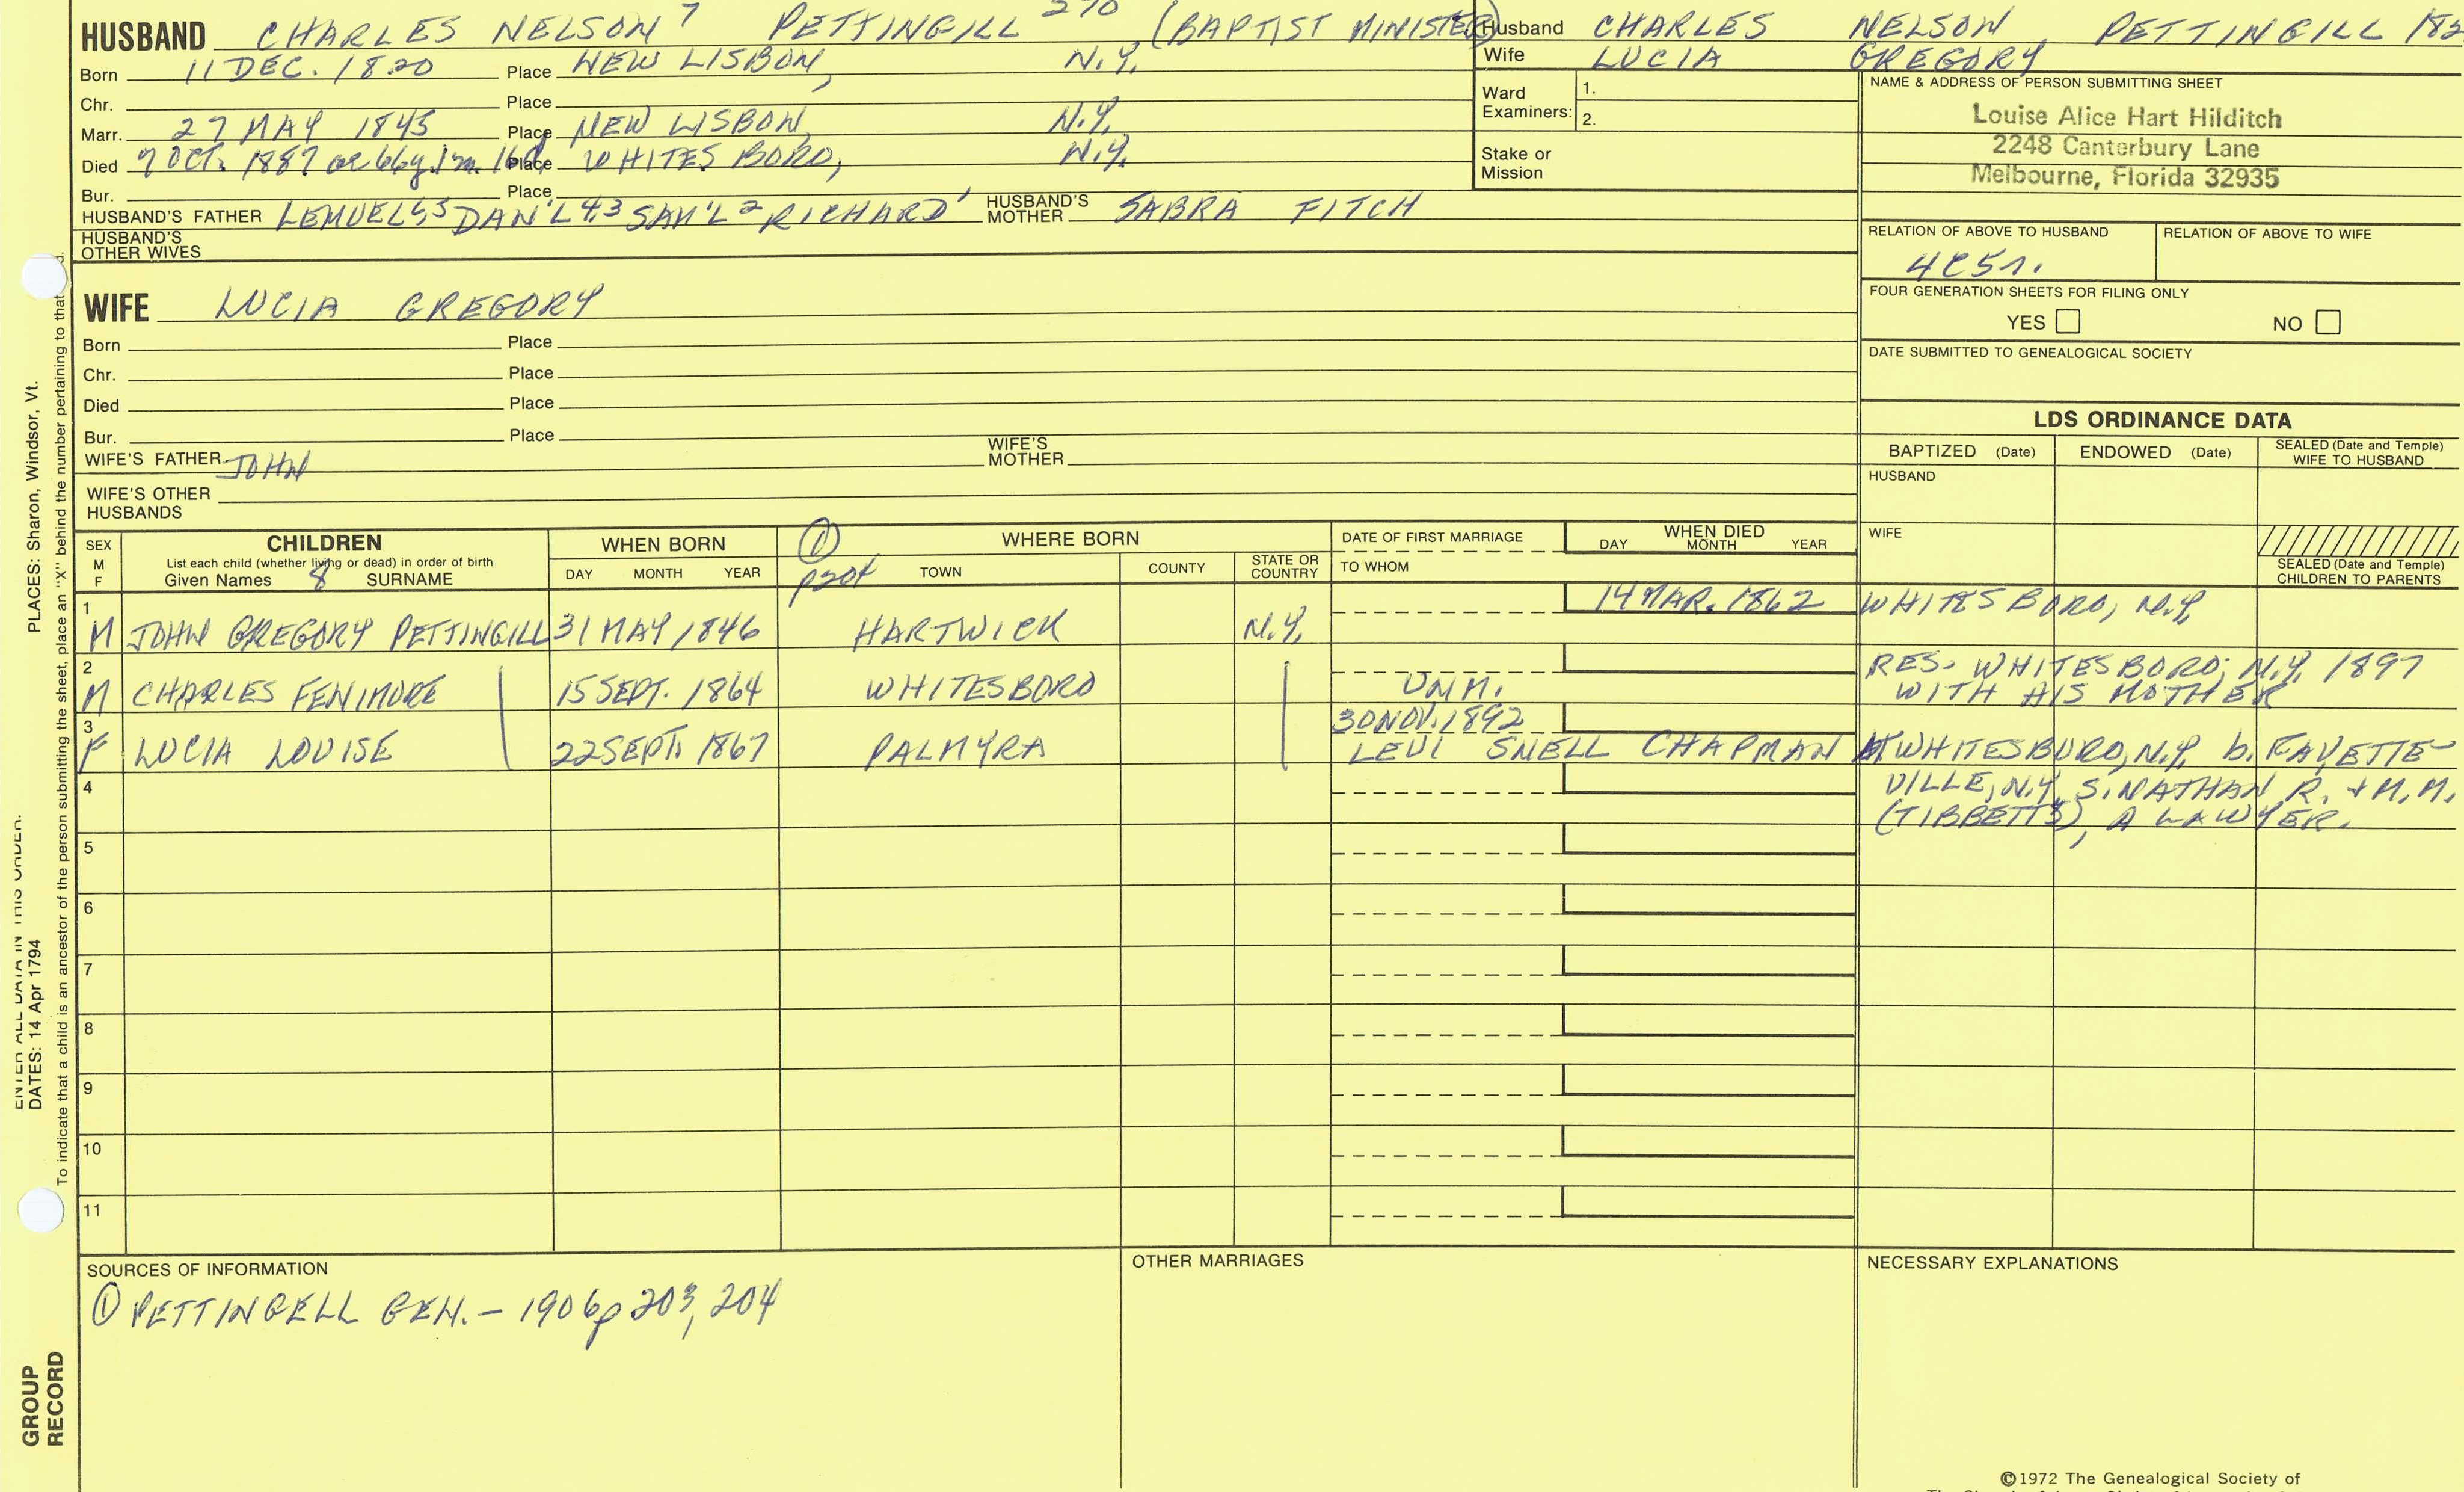 HUSBAND CHARLES NELSON 7 PETTINGILL 270 (BAPTIST MINISTER)
Born 11 DEC. 1820 Place NEW LISBON, N.Y.
Chr. Place
Marr. 27 MAY 1845 Place NEW LISBON, N.Y.
Died 7 OCT. 1887 ae 66y. 1m. 16d Place WHITESBORO, N.Y.
Bur. Place
HUSBAND'S FATHER LEMUEL 6,5 DAN'L 4,3 SAM'L 2 RICHARD 1 HUSBAND'S MOTHER SABRA FITCH
HUSBAND'S OTHER WIVES
Husband CHARLES NELSON PETTINGILL 182
Wife LUCIA GREGORY
Ward Examiners: 1.
2.
Stake or Mission
NAME & ADDRESS OF PERSON SUBMITTING SHEET
Louise Alice Hart Hilditch
2248 Canterbury Lane
Melbourne, Florida 32935
RELATION OF ABOVE TO HUSBAND RELATION OF ABOVE TO WIFE
4C5r.
FOUR GENERATION SHEETS FOR FILING ONLY
YES NO
DATE SUBMITTED TO GENEALOGICAL SOCIETY
WIFE LUCIA GREGORY
Born Place
Chr. Place
Died Place
Bur. Place
WIFE'S FATHER JOHN WIFE'S MOTHER
WIFE'S OTHER HUSBANDS
LDS ORDINANCE DATA
BAPTIZED (Date) ENDOWED (Date) SEALED (Date and Temple) WIFE TO HUSBAND
HUSBAND
WIFE
SEALED (Date and Temple) CHILDREN TO PARENTS
SEX M F
CHILDREN
List each child (whether living or dead) in order of birth
Given Names 8 SURNAME
WHEN BORN
DAY MONTH YEAR
① p204
WHERE BORN
TOWN COUNTY STATE OR COUNTRY
DATE OF FIRST MARRIAGE
TO WHOM
WHEN DIED
DAY MONTH YEAR
1 M JOHN GREGORY PETTINGILL 31 MAY 1846 HARTWICK N.Y. 14 MAR. 1862 WHITESBORO, N.Y.
2 M CHARLES FENIMORE 15 SEPT. 1864 WHITESBORO UNM. RES. WHITESBORO, N.Y. 1897
WITH HIS MOTHER
3 F LUCIA LOUISE 22 SEPT. 1867 PALMYRA 30 NOV. 1892
LEVI SNELL CHAPMAN AT WHITESBORO, N.Y. b. FAYETTE-
VILLE, N.Y. S. NATHAN R. + M. M.
(TIBBETTS), A LAWYER.
4
5
6
7
8
9
10
11
SOURCES OF INFORMATION
① PETTINGELL GEN. - 1906 p 203, 204
OTHER MARRIAGES
NECESSARY EXPLANATIONS
©1972 The Genealogical Society of
PLACES: Sharon, Windsor, Vt.
ENTER ALL DATA IN THIS ORDER:
DATES: 14 Apr 1794
To indicate that a child is an ancestor of the person submitting the sheet, place an "X" behind the number pertaining to that
GROUP RECORD